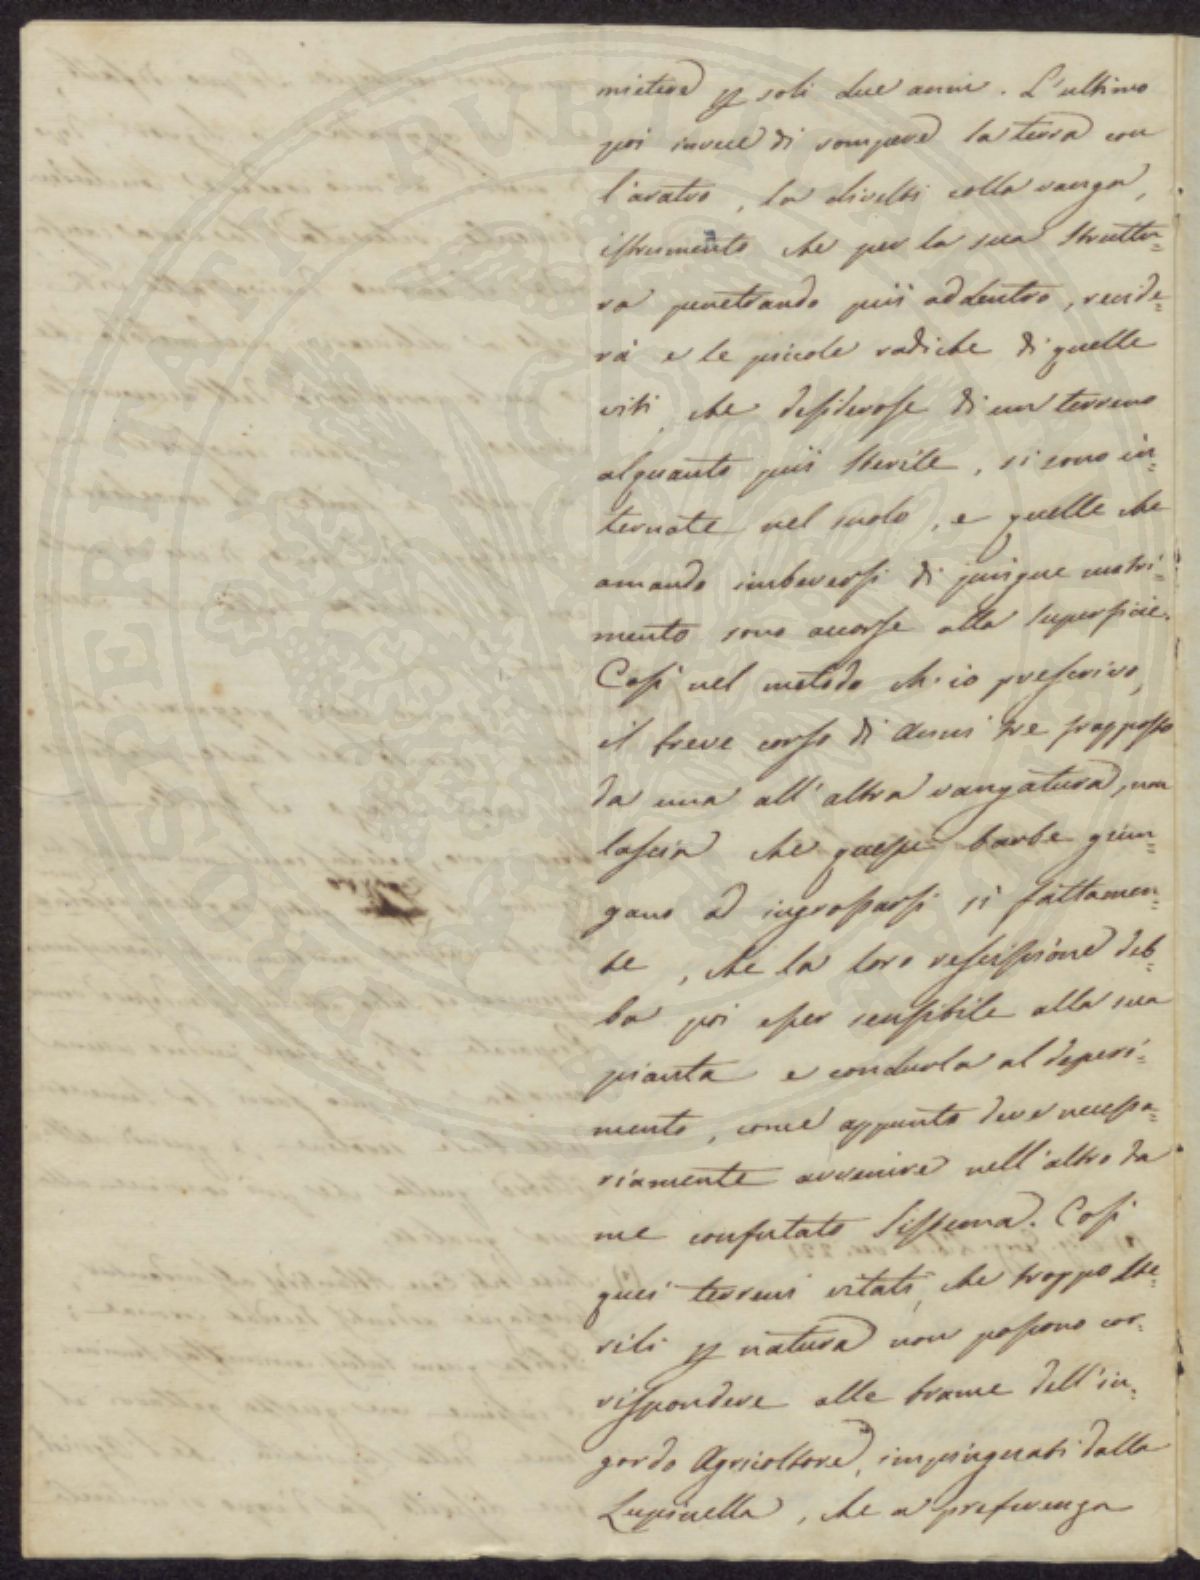 mietere p soli due anni. L'ultimo
poi invece di rompere la terra con
l'aratro, la divelti colla vanga,
istrumento che per la sua struttu=
ra penetrando più addentro, recide=
rà e le picole radiche di quelle
viti, che desiderose di un terreno
alquanto più sterile, si sono in=
ternate nel suolo, e quelle che
amando imbeversi di pingue nutri=
mento sono accorse alla superficie.
Così nel metodo ch'io prescrivo,
il breve corso di anni tre frapposto
da una all'altra vangatura, non
lascia che queste barbe giun=
gano ad ingrossarsi sì fattamen=
te, che la loro rescissione deb=
ba poi esser sensibile alla sua
pianta e condurla al deperi=
mento, come appunto deve necessa=
riamente avvenire nell'altro da
me confutato sistema. Così
quei terreni vitati, che troppo ste=
rili p natura non possono cor=
rispondere alle brame dell'in=
gordo Agricoltore, impinguati dalla
Lupinella, che a preferenza